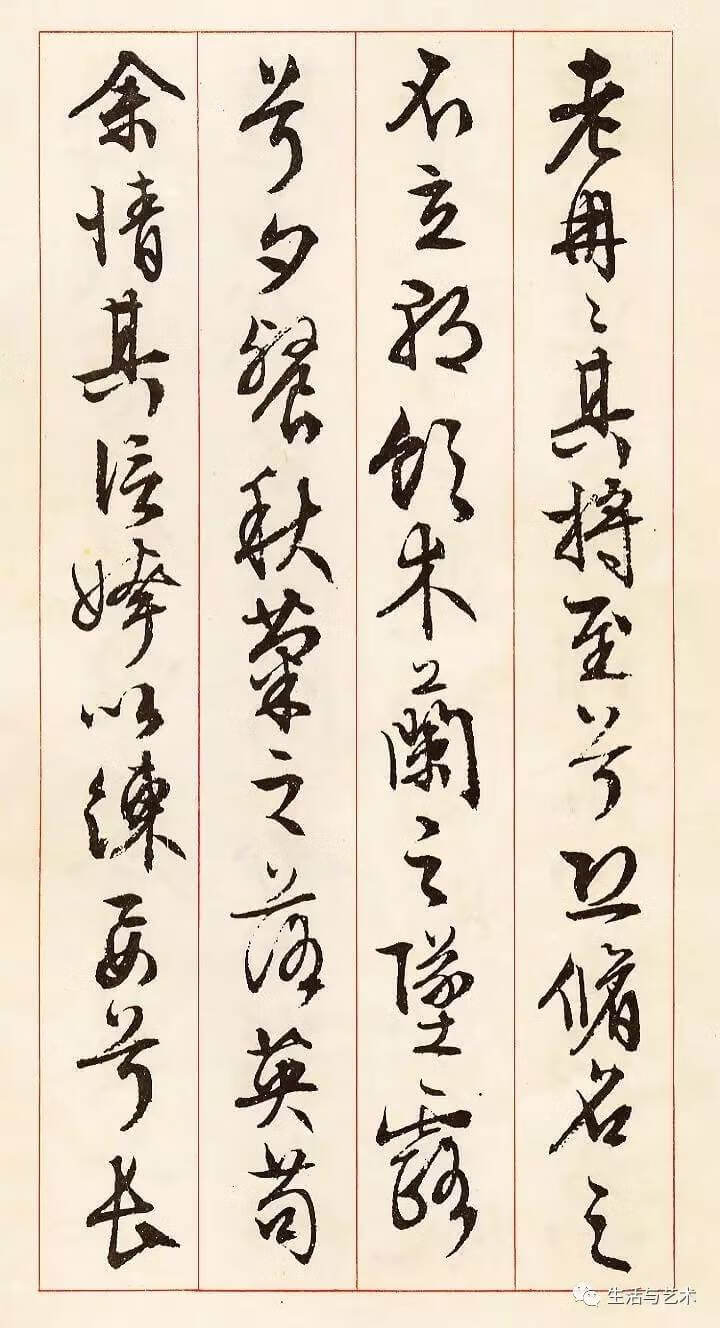 老冉〻其將至兮恐脩名之
不立朝飲木蘭之墜露
兮夕餐秋菊之落英苟
余情其信姱以練要兮長
生活与艺术